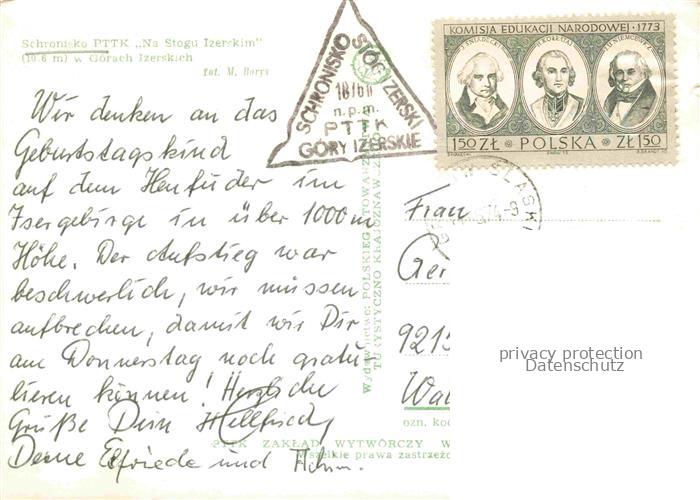 Schronisko PTTK „Na Stogu Izerskim”
w Górach Izerskich
fot. M. Borys
Wir denken an das
Geburtstagskind
auf dem Heufuder im
Isergebirge in über 1000 m
Höhe. Der Aufstieg war
beschwerlich, wir müssen
aufbrechen, damit wir Dir
am Donnerstag noch gratu-
lieren können! Herzliche
Grüße Dein Hellfried,
Deine Elfriede und
SCHRONISKO
STÓG IZERSKI
n.p.m.
PTTK
GÓRY IZERSKIE
KOMISJA EDUKACJI NARODOWEJ · 1773
1,50 ZŁ POLSKA ZŁ 1,50
ŚLĄSKI
Frau
Ger
9215
Wal
ozn. kod
PTTK ZAKŁAD WYTWÓRCZY W
Wszelkie prawa zastrzeżo
privacy protection
Datenschutz